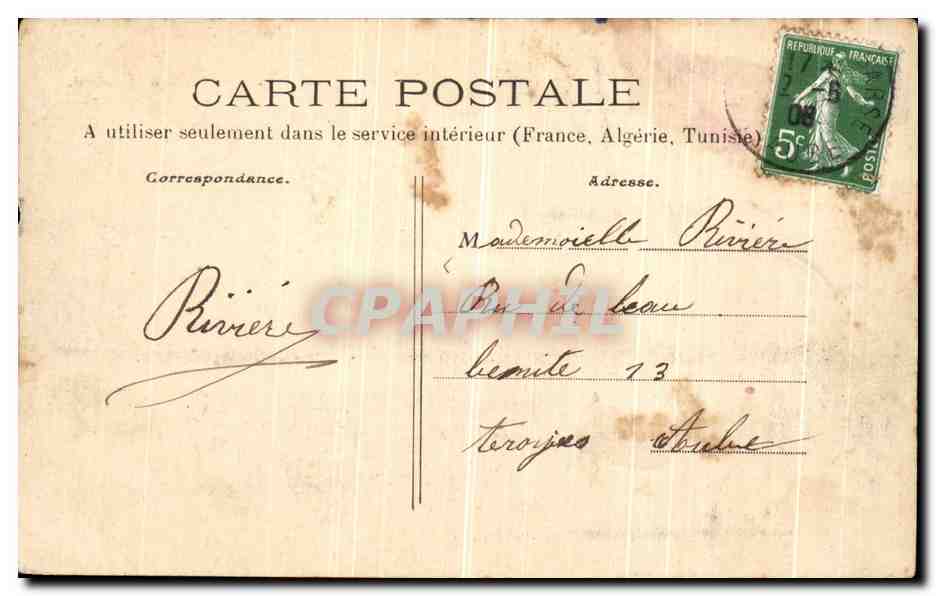 CARTE POSTALE
A utiliser seulement dans le service intérieur (France, Algérie, Tunisie)
REPUBLIQUE FRANÇAISE
5c
POSTES
17
2 -6
08
Correspondance.
Adresse.
Mademoiselle Rivière
Rue de beau
13
troyes Aube
Rivière
CPAPHIL